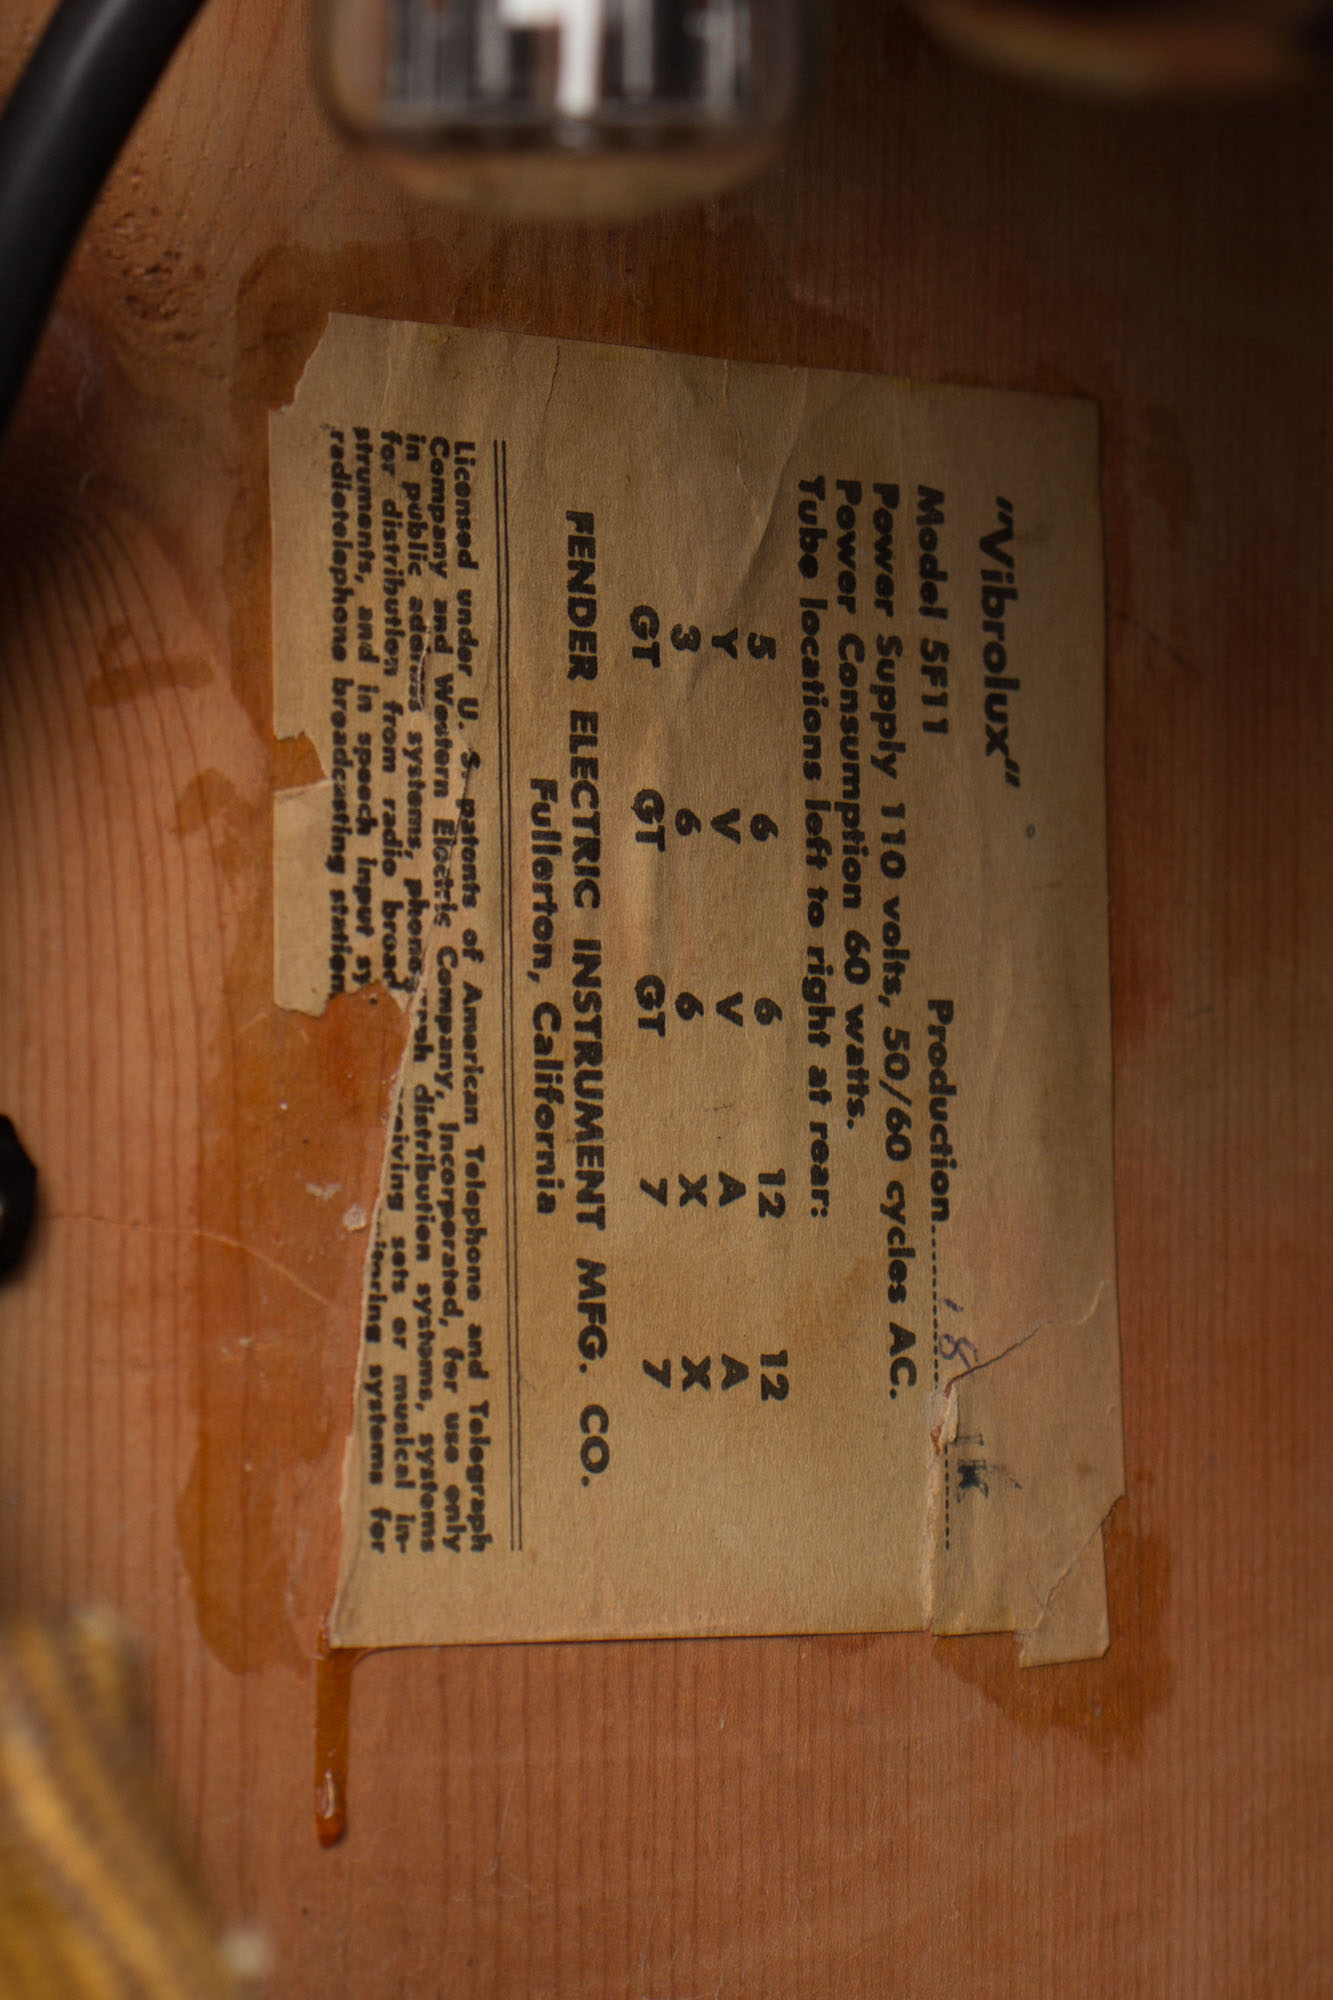 "Vibrolux"
Model 5F11 Production
Power Supply 110 volts, 50/60 cycles AC.
Power Consumption 60 watts.
Tube locations left to right at rear:
5 6 6 12 12
Y V V A A
3 6 6 X X
GT GT GT 7 7
FENDER ELECTRIC INSTRUMENT MFG. CO.
Fullerton, California
Licensed under U. S. patents of American Telephone and Telegraph
Company and Western Electric Company, Incorporated, for use only
in public address systems, distribution systems, systems
for distribution from radio sets or musical in-
struments, and in speech input systems for
radiotelephone broadcasting